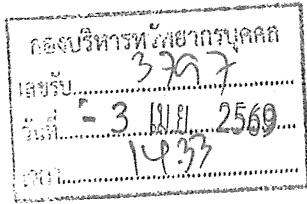 กองบริหารทรัพยากรบุคคล
เลขรับ 3797
วันที่ - 3 เม.ย. 2569
เวลา 14.33